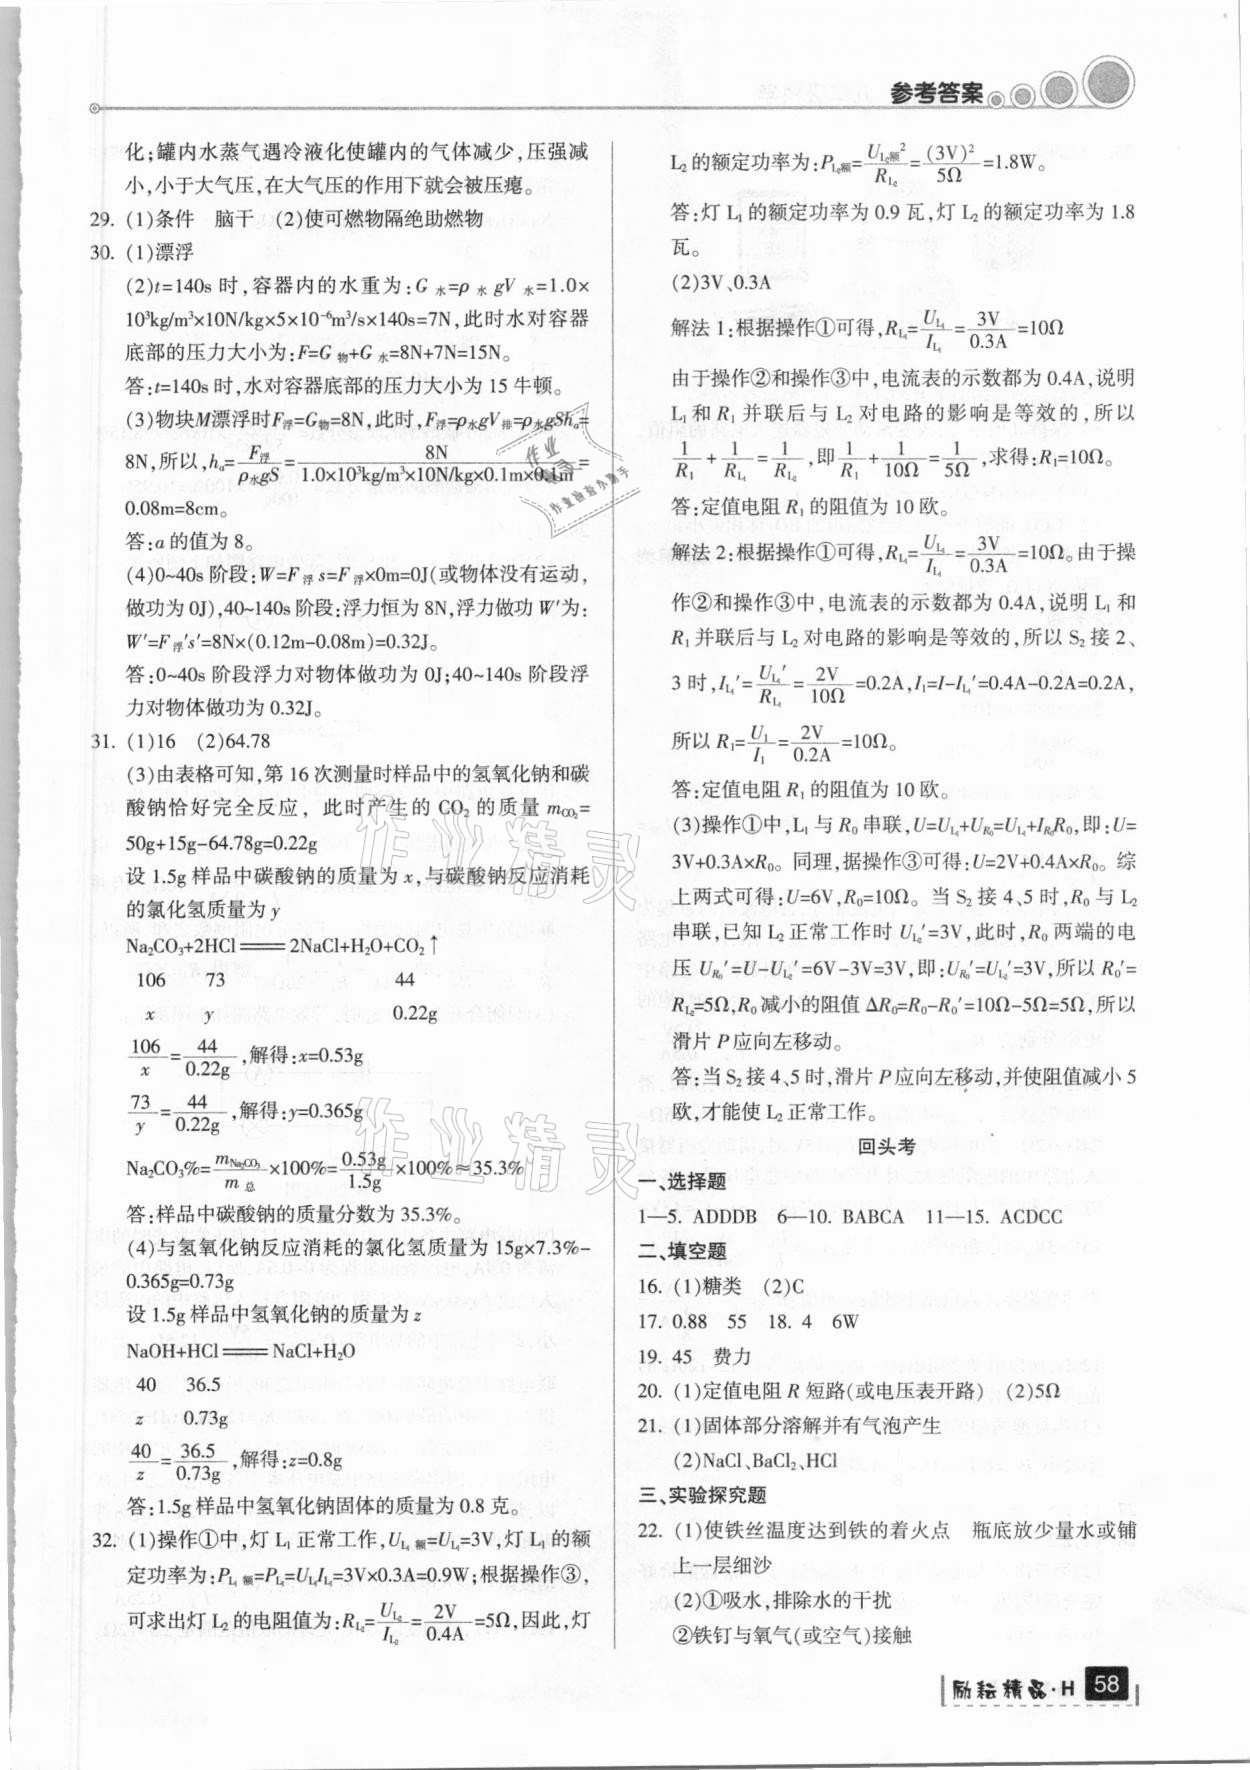 参考答案
化;罐内水蒸气遇冷液化使罐内的气体减少,压强减
小,小于大气压,在大气压的作用下就会被压瘪。
29. (1)条件 脑干 (2)使可燃物隔绝助燃物
30. (1)漂浮
(2)t=140s 时,容器内的水重为:G水=ρ水gV水=1.0×
10³kg/m³×10N/kg×5×10⁻⁶m³/s×140s=7N,此时水对容器
底部的压力大小为:F=G物+G水=8N+7N=15N。
答:t=140s 时,水对容器底部的压力大小为 15 牛顿。
(3)物块M漂浮时F浮=G物=8N,此时,F浮=ρ水gV排=ρ水gSh_a=
8N,所以,h_a=F浮/ρ水gS=8N/1.0×10³kg/m³×10N/kg×0.1m×0.1m=
0.08m=8cm。
答:a 的值为 8。
(4)0~40s 阶段:W=F浮s=F浮×0m=0J(或物体没有运动,
做功为 0J),40~140s 阶段:浮力恒为 8N,浮力做功 W′为:
W′=F浮′s′=8N×(0.12m-0.08m)=0.32J。
答:0~40s 阶段浮力对物体做功为 0J;40~140s 阶段浮
力对物体做功为 0.32J。
31. (1)16 (2)64.78
(3)由表格可知,第 16 次测量时样品中的氢氧化钠和碳
酸钠恰好完全反应，此时产生的 CO₂ 的质量 m_CO₂=
50g+15g-64.78g=0.22g
设 1.5g 样品中碳酸钠的质量为 x,与碳酸钠反应消耗
的氯化氢质量为 y
Na₂CO₃+2HCl═══2NaCl+H₂O+CO₂↑
106 73 44
x y 0.22g
106/x=44/0.22g,解得:x=0.53g
73/y=44/0.22g,解得:y=0.365g
Na₂CO₃%=m_Na₂CO₃/m总×100%=0.53g/1.5g×100%≈35.3%
答:样品中碳酸钠的质量分数为 35.3%。
(4)与氢氧化钠反应消耗的氯化氢质量为 15g×7.3%-
0.365g=0.73g
设 1.5g 样品中氢氧化钠的质量为 z
NaOH+HCl═══NaCl+H₂O
40 36.5
z 0.73g
40/z=36.5/0.73g,解得:z=0.8g
答:1.5g 样品中氢氧化钠固体的质量为 0.8 克。
32. (1)操作①中,灯 L₁ 正常工作,U_L₁额=U_L₁=3V,灯 L₁ 的额
定功率为:P_L₁额=P_L₁=U_L₁I_L₁=3V×0.3A=0.9W;根据操作③,
可求出灯 L₂ 的电阻值为:R_L₂=U_L₂/I_L₂=2V/0.4A=5Ω,因此,灯
L₂ 的额定功率为:P_L₂额=U_L₂额²/R_L₂=(3V)²/5Ω=1.8W。
答:灯 L₁ 的额定功率为 0.9 瓦,灯 L₂ 的额定功率为 1.8
瓦。
(2)3V、0.3A
解法 1:根据操作①可得,R_L₁=U_L₁/I_L₁=3V/0.3A=10Ω
由于操作②和操作③中,电流表的示数都为 0.4A,说明
L₁ 和 R₁ 并联后与 L₂ 对电路的影响是等效的,所以
1/R₁+1/R_L₁=1/R_L₂,即1/R₁+1/10Ω=1/5Ω,求得:R₁=10Ω。
答:定值电阻 R₁ 的阻值为 10 欧。
解法 2:根据操作①可得,R_L₁=U_L₁/I_L₁=3V/0.3A=10Ω。由于操
作②和操作③中,电流表的示数都为 0.4A,说明 L₁ 和
R₁ 并联后与 L₂ 对电路的影响是等效的,所以 S₂ 接 2、
3 时,I_L₁′=U_L₁′/R_L₁=2V/10Ω=0.2A,I₁=I-I_L₁′=0.4A-0.2A=0.2A,
所以 R₁=U₁/I₁=2V/0.2A=10Ω。
答:定值电阻 R₁ 的阻值为 10 欧。
(3)操作①中,L₁ 与 R₀ 串联,U=U_L₁+U_R₀=U_L₁+I_R₀R₀,即:U=
3V+0.3A×R₀。同理,据操作③可得:U=2V+0.4A×R₀。综
上两式可得:U=6V,R₀=10Ω。当 S₂ 接 4、5 时,R₀ 与 L₂
串联,已知 L₂ 正常工作时 U_L₂′=3V,此时,R₀ 两端的电
压 U_R₀′=U-U_L₂′=6V-3V=3V,即:U_R₀′=U_L₂′=3V,所以 R₀′=
R_L₂=5Ω,R₀ 减小的阻值 ΔR₀=R₀-R₀′=10Ω-5Ω=5Ω,所以
滑片 P 应向左移动。
答:当 S₂ 接 4、5 时,滑片 P 应向左移动,并使阻值减小 5
欧,才能使 L₂ 正常工作。
回头考
一、选择题
1—5. ADDDB 6—10. BABCA 11—15. ACDCC
二、填空题
16. (1)糖类 (2)C
17. 0.88 55 18. 4 6W
19. 45 费力
20. (1)定值电阻 R 短路(或电压表开路) (2)5Ω
21. (1)固体部分溶解并有气泡产生
(2)NaCl、BaCl₂、HCl
三、实验探究题
22. (1)使铁丝温度达到铁的着火点 瓶底放少量水或铺
上一层细沙
(2)①吸水,排除水的干扰
②铁钉与氧气(或空气)接触
励耘精品·H 58
作业精灵
作业精灵